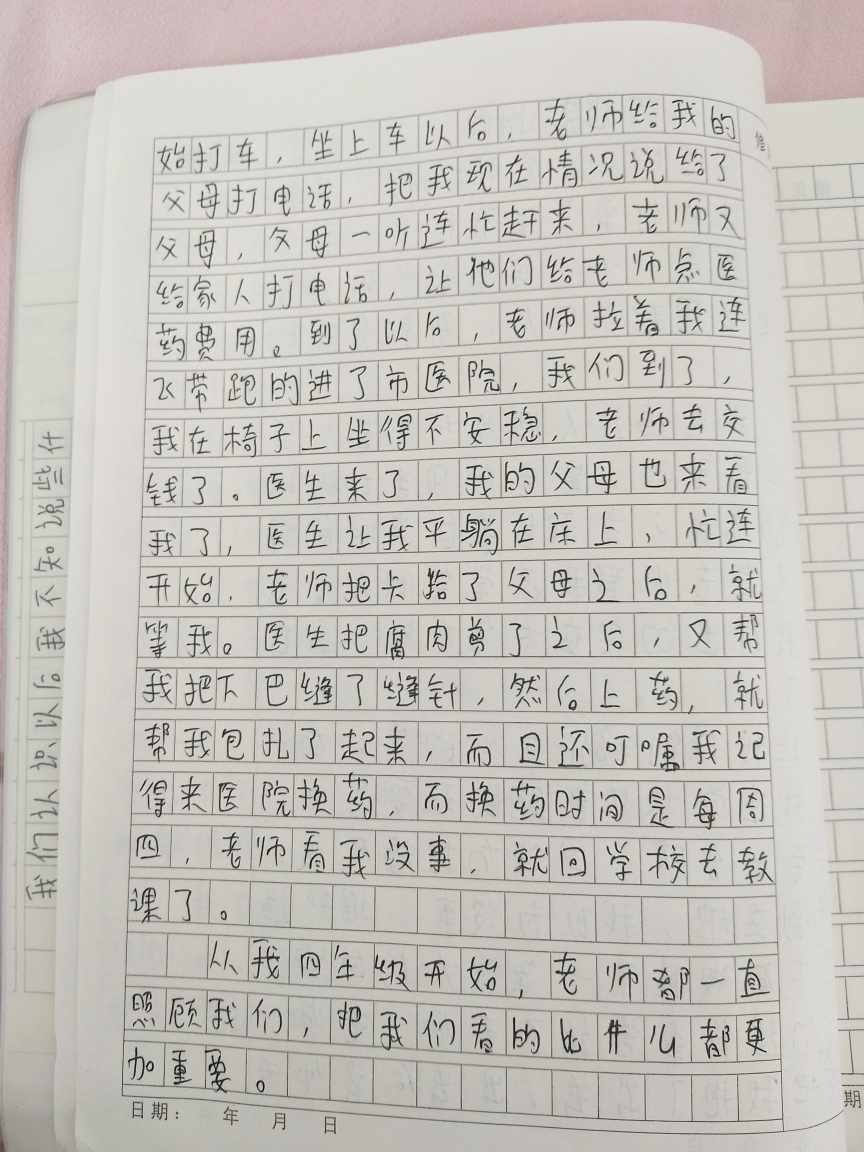 始打车，坐上车以后，老师给我的
父母打电话，把我现在情况说给了
父母，父母一听连忙赶来，老师又
给家人打电话，让他们给老师点医
药费用。到了以后，老师拉着我连
飞带跑的进了市医院，我们到了，
我在椅子上坐得不安稳，老师去交
钱了。医生来了，我的父母也来看
我了，医生让我平躺在床上，忙连
开始，老师把卡给了父母之后，就
等我。医生把腐肉剪了之后，又帮
我把下巴缝了缝针，然后上药，就
帮我包扎了起来，而且还叮嘱我记
得来医院换药，而换药时间是每周
四，老师看我没事，就回学校去教
课了。
从我四年级开始，老师都一直
照顾我们，把我们看的比件儿都更
加重要。
日期： 年 月 日
我们认识以后我不知说些什
期